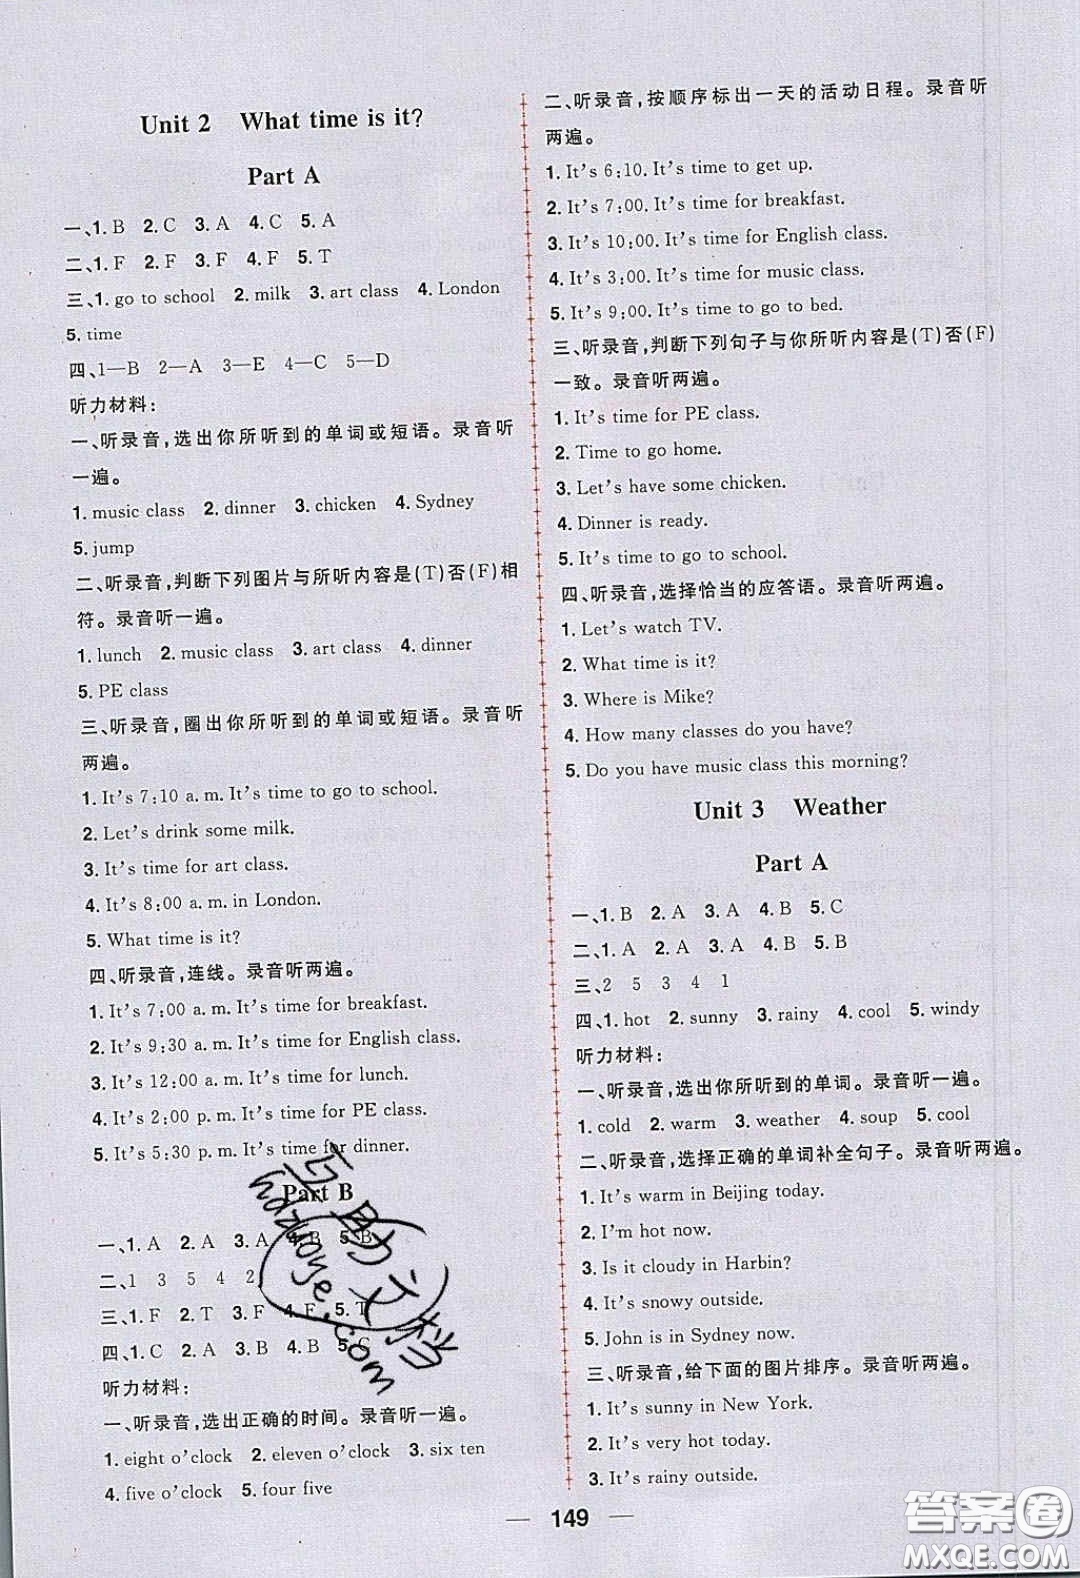 Unit 2 What time is it?
Part A
一、1. B 2. C 3. A 4. C 5. A
二、1. F 2. F 3. F 4. F 5. T
三、1. go to school 2. milk 3. art class 4. London
5. time
四、1—B 2—A 3—E 4—C 5—D
听力材料:
一、听录音,选出你所听到的单词或短语。录音听
一遍。
1. music class 2. dinner 3. chicken 4. Sydney
5. jump
二、听录音,判断下列图片与所听内容是(T)否(F)相
符。录音听一遍。
1. lunch 2. music class 3. art class 4. dinner
5. PE class
三、听录音,圈出你所听到的单词或短语。录音听
两遍。
1. It's 7:10 a. m. It's time to go to school.
2. Let's drink some milk.
3. It's time for art class.
4. It's 8:00 a. m. in London.
5. What time is it?
四、听录音,连线。录音听两遍。
1. It's 7:00 a. m. It's time for breakfast.
2. It's 9:30 a. m. It's time for English class.
3. It's 12:00 a. m. It's time for lunch.
4. It's 2:00 p. m. It's time for PE class.
5. It's 5:30 p. m. It's time for dinner.
Part B
一、1. A 2. A 3. A 4. B 5. B
二、1 3 5 4 2
三、1. F 2. T 3. F 4. F 5. T
四、1. C 2. A 3. B 4. B 5. C
听力材料:
一、听录音,选出正确的时间。录音听一遍。
1. eight o'clock 2. eleven o'clock 3. six ten
4. five o'clock 5. four five
二、听录音,按顺序标出一天的活动日程。录音听
两遍。
1. It's 6:10. It's time to get up.
2. It's 7:00. It's time for breakfast.
3. It's 10:00. It's time for English class.
4. It's 3:00. It's time for music class.
5. It's 9:00. It's time to go to bed.
三、听录音,判断下列句子与你所听内容是(T)否(F)
一致。录音听两遍。
1. It's time for PE class.
2. Time to go home.
3. Let's have some chicken.
4. Dinner is ready.
5. It's time to go to school.
四、听录音,选择恰当的应答语。录音听两遍。
1. Let's watch TV.
2. What time is it?
3. Where is Mike?
4. How many classes do you have?
5. Do you have music class this morning?
Unit 3 Weather
Part A
一、1. B 2. A 3. A 4. B 5. C
二、1. A 2. A 3. A 4. B 5. B
三、2 5 3 4 1
四、1. hot 2. sunny 3. rainy 4. cool 5. windy
听力材料:
一、听录音,选出你所听到的单词。录音听一遍。
1. cold 2. warm 3. weather 4. soup 5. cool
二、听录音,选择正确的单词补全句子。录音听两遍。
1. It's warm in Beijing today.
2. I'm hot now.
3. Is it cloudy in Harbin?
4. It's snowy outside.
5. John is in Sydney now.
三、听录音,给下面的图片排序。录音听两遍。
1. It's sunny in New York.
2. It's very hot today.
3. It's rainy outside.
— 149 —
答案圈
MXQE.COM